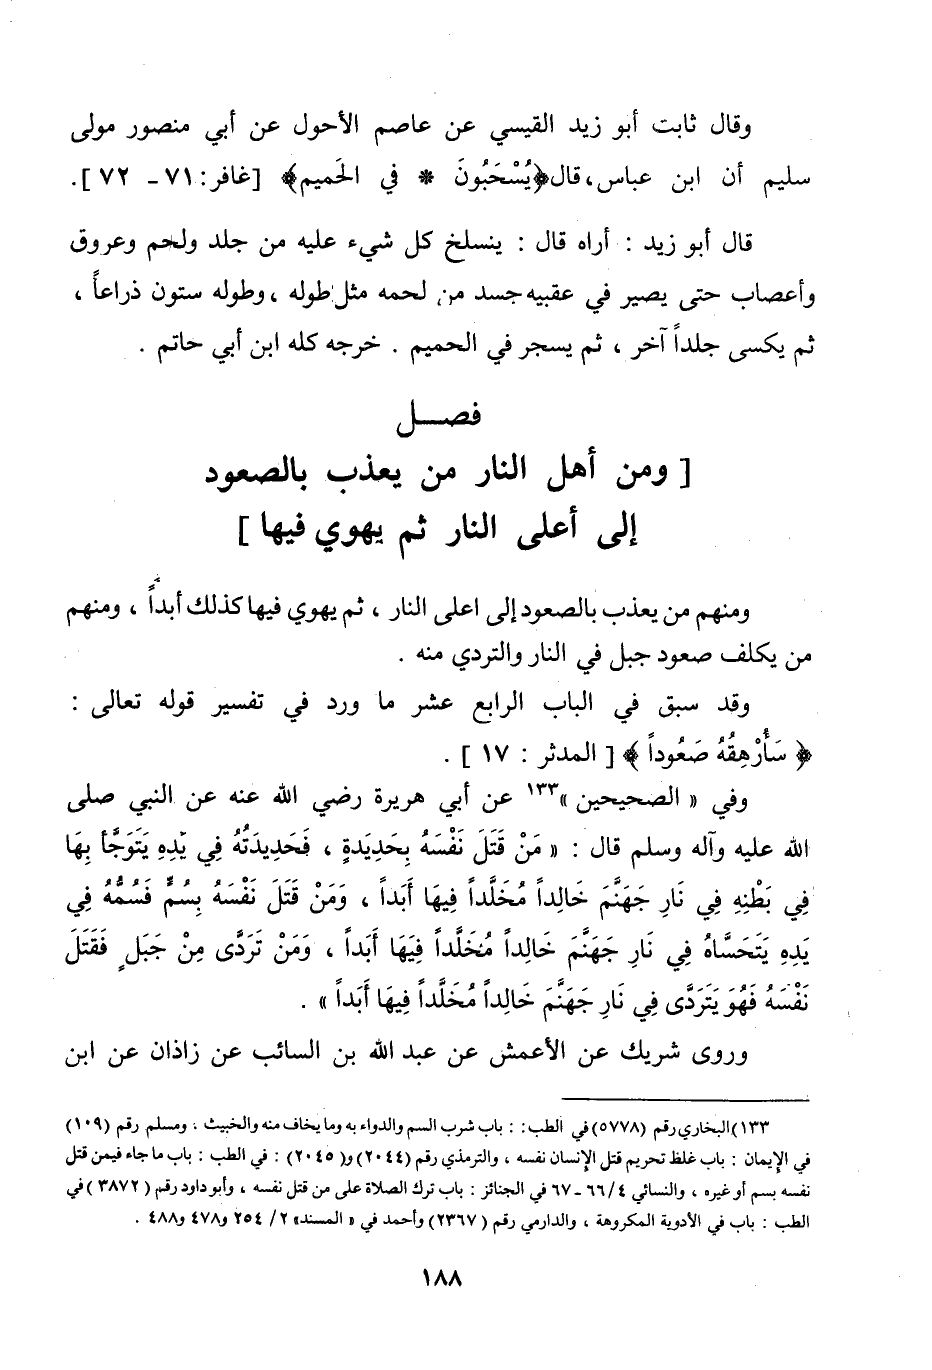 وقال ثابت أبو زيد القيسي عن عاصم الأحول عن أبي منصور مولى
سليم أن ابن عباس، قال ﴿يُسْحَبُونَ * في الحَميم﴾ [غافر: ٧١ـ ٧٢ ].
قال أبو زيد : أراه قال : ينسلخ كل شيء عليه من جلد ولحم وعروق
وأعصاب حتى يصير في عقبيه جسد من لحمه مثل طوله ، وطوله ستون ذراعاً ،
ثم يكسى جلداً آخر ، ثم يسجر في الحميم . خرجه كله ابن أبي حاتم .
فصـــل
[ ومن أهل النار من يعذب بالصعود
إلى أعلى النار ثم يهوي فيها ]
ومنهم من يعذب بالصعود إلى اعلى النار ، ثم يهوي فيها كذلك أبداً ، ومنهم
من يكلف صعود جبل في النار والتردي منه .
وقد سبق في الباب الرابع عشر ما ورد في تفسير قوله تعالى :
﴿ سَأُرْهِقُهُ صَعُوداً ﴾ [ المدثر : ١٧ ] .
وفي « الصحيحين »١٣٣ عن أبي هريرة رضي الله عنه عن النبي صلى
الله عليه وآله وسلم قال : « مَنْ قَتَلَ نَفْسَهُ بِحَدِيدَةٍ ، فَحَدِيدَتُهُ فِي يَدِهِ يَتَوَجَّأُ بِهَا
فِي بَطْنِهِ فِي نَارِ جَهَنَّمَ خَالِداً مُخَلَّداً فِيهَا أَبَداً ، وَمَنْ قَتَلَ نَفْسَهُ بِسُمٍّ فَسُمُّهُ فِي
يَدِهِ يَتَحَسَّاهُ فِي نَارِ جَهَنَّمَ خَالِداً مُخَلَّداً فِيهَا أَبَداً ، وَمَنْ تَرَدَّى مِنْ جَبَلٍ فَقَتَلَ
نَفْسَهُ فَهُوَ يَتَرَدَّى فِي نَارِ جَهَنَّمَ خَالِداً مُخَلَّداً فِيهَا أَبَداً » .
وروى شريك عن الأعمش عن عبد الله بن السائب عن زاذان عن ابن
١٣٣)البخاري رقم (٥٧٧٨) في الطب: : باب شرب السم والدواء به وما يخاف منه والخبيث ، ومسلم رقم (١٠٩)
في الإيمان : باب غلظ تحريم قتل الإنسان نفسه ، والترمذي رقم (٢٠٤٤) و( ٢٠٤٥) : في الطب : باب ما جاء فيمن قتل
نفسه بسم أو غيره ، والنسائي ٤/ ٦٦ـ ٦٧ في الجنائز : باب ترك الصلاة على من قتل نفسه ، وأبو داود رقم ( ٣٨٧٢ ) في
الطب : باب في الأدوية المكروهة ، والدارمي رقم ( ٢٣٦٧) وأحمد في « المسند» ٢/ ٢٥٤ و٤٧٨ و٤٨٨ .
١٨٨